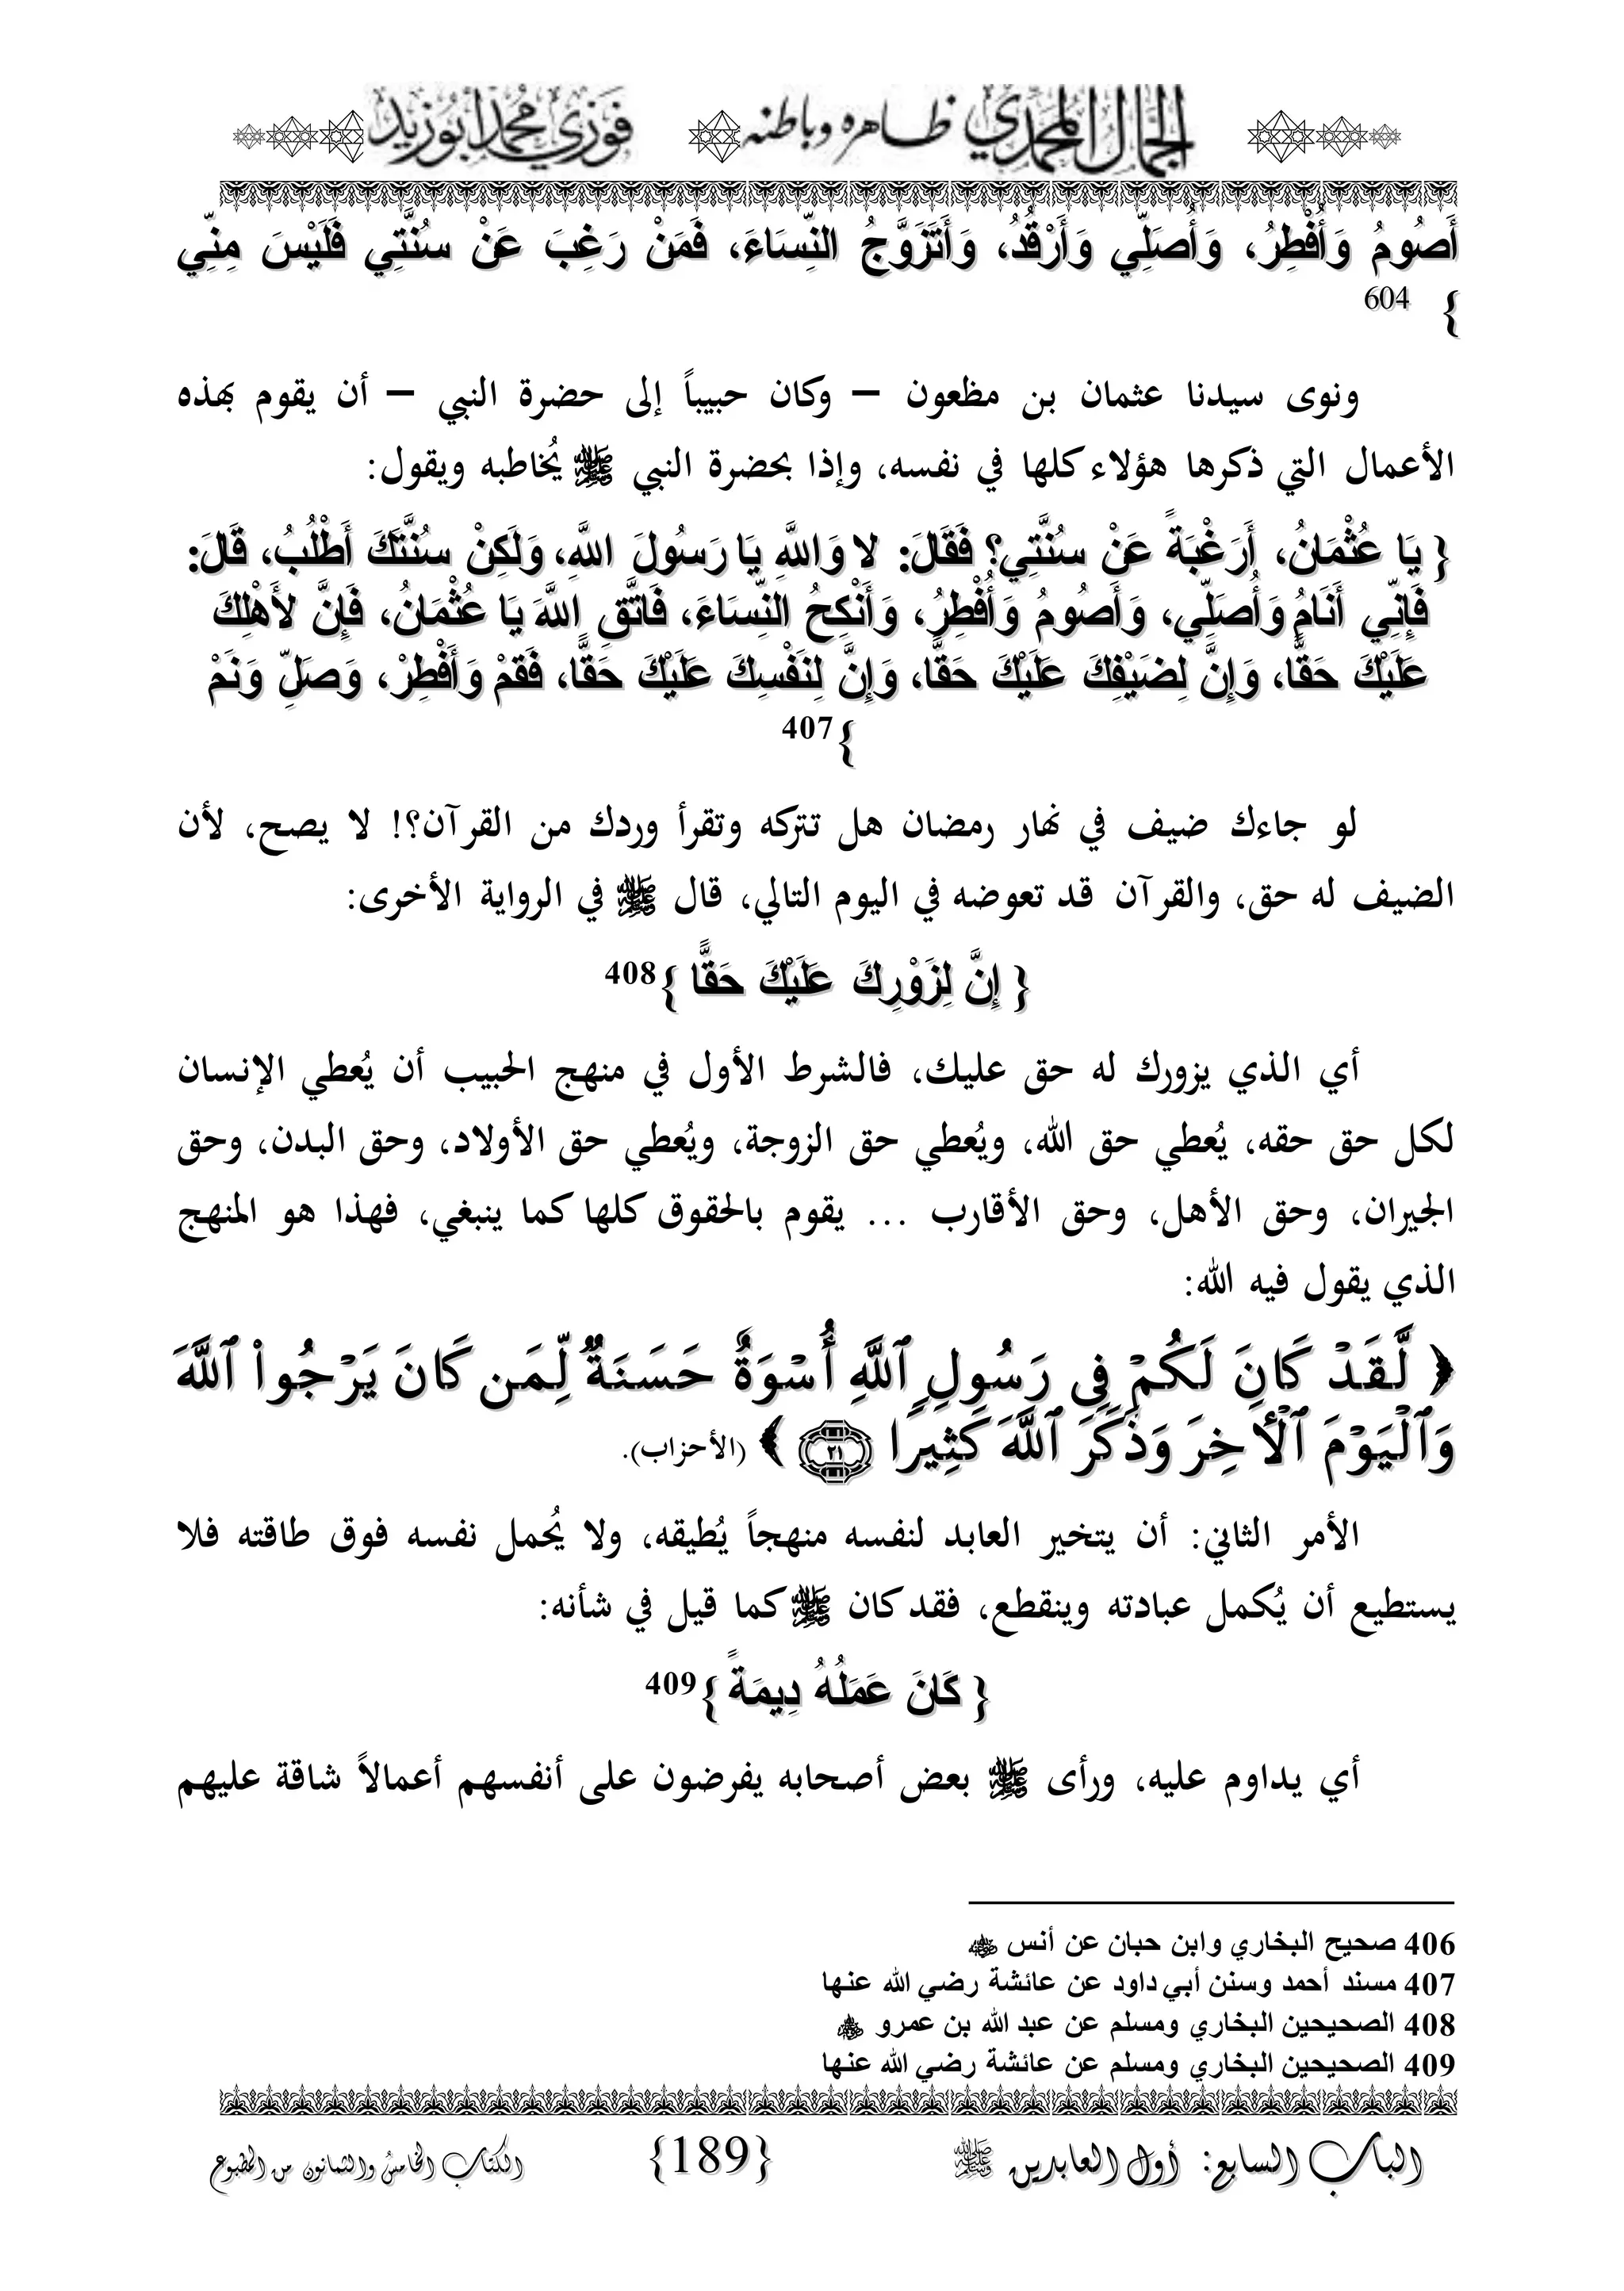 الجمال المحمدي ظاهره وباطنه فوزي محمد أبوزيد
أَصُومُ وَأُفْطِرُ، وَأُصَلِّي وَأَرْقُدُ، وَأَتَزَوَّجُ النِّسَاءَ، فَمَنْ رَغِبَ عَنْ سُنَّتِي فَلَيْسَ مِنِّي
} 604
ونوى سيدنا عثمان بن مظعون – وكان حبيباً إلى حضرة النبي – أن يقوم بهذه
الأعمال التي ذكرها هؤلاء كلها في نفسه، وإذا بحضرة النبي ﷺ يُخاطبه ويقول:
{ يَا عُثْمَانُ، أَرَغْبَةً عَنْ سُنَّتِي؟ فَقَالَ: لا وَاللَّهِ يَا رَسُولَ اللَّهِ، وَلَكِنْ سُنَّتَكَ أَطْلُبُ، قَالَ:
فَإِنِّي أَنَامُ وَأُصَلِّي، وَأَصُومُ وَأُفْطِرُ، وَأَنْكِحُ النِّسَاءَ، فَاتَّقِ اللَّهَ يَا عُثْمَانُ، فَإِنَّ لأَهْلِكَ
عَلَيْكَ حَقًّا، وَإِنَّ لِضَيْفِكَ عَلَيْكَ حَقًّا، وَإِنَّ لِنَفْسِكَ عَلَيْكَ حَقًّا، فَقمْ وَأَفْطِرْ، وَصَلِّ وَنَمْ
}407
لو جاءك ضيف في نهار رمضان هل تتركه وتقرأ وردك من القرآن؟! لا يصح، لأن
الضيف له حق، والقرآن قد تعوضه في اليوم التالي، قال ﷺ في الرواية الأخرى:
{ إِنَّ لِزَوْرِكَ عَلَيْكَ حَقًّا }408
أي الذي يزورك له حق عليك، فالشرط الأول في منهج الحبيب أن يُعطي الإنسان
لكل حق حقه، يُعطي حق الله، ويُعطي حق الزوجة، ويُعطي حق الأولاد، وحق البدن، وحق
الجيران، وحق الأهل، وحق الأقارب ... يقوم بالحقوق كلها كما ينبغي، فهذا هو المنهج
الذي يقول فيه الله:
﴿ لَّقَدۡ كَانَ لَكُمۡ فِي رَسُولِ ٱللَّهِ أُسۡوَةٌ حَسَنَةٞ لِّمَن كَانَ يَرۡجُواْ ٱللَّهَ
وَٱلۡيَوۡمَ ٱلۡأٓخِرَ وَذَكَرَ ٱللَّهَ كَثِيرٗا ٢١ ﴾ (الأحزاب).
الأمر الثاني: أن يتخير العابد لنفسه منهجاً يُطيقه، ولا يُحمل نفسه فوق طاقته فلا
يستطيع أن يُكمل عبادته وينقطع، فقد كان ﷺ كما قيل في شأنه:
{ كَانَ عَمَلُهُ دِيمَةً }409
أي يداوم عليه، ورأى ﷺ بعض أصحابه يفرضون على أنفسهم أعمالاً شاقة عليهم
406 صحيح البخاري وابن حبان عن أنس
407 مسند أحمد وسنن أبي داود عن عائشة رضي الله عنها
408 الصحيحين البخاري ومسلم عن عبد الله بن عمرو
409 الصحيحين البخاري ومسلم عن عائشة رضي الله عنها
الباب السابع: أول العابدين ﷺ {189} الكتاب الخامس والثمانون من المطبوع